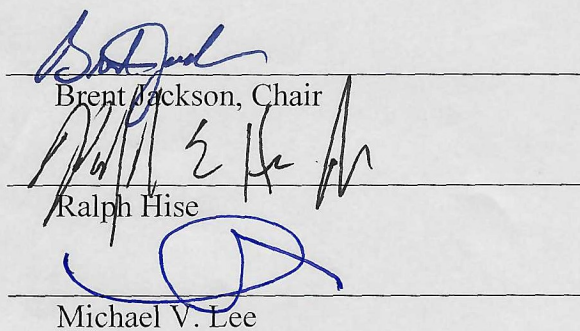 Brent Jackson, Chair
Ralph Hise
Michael V. Lee